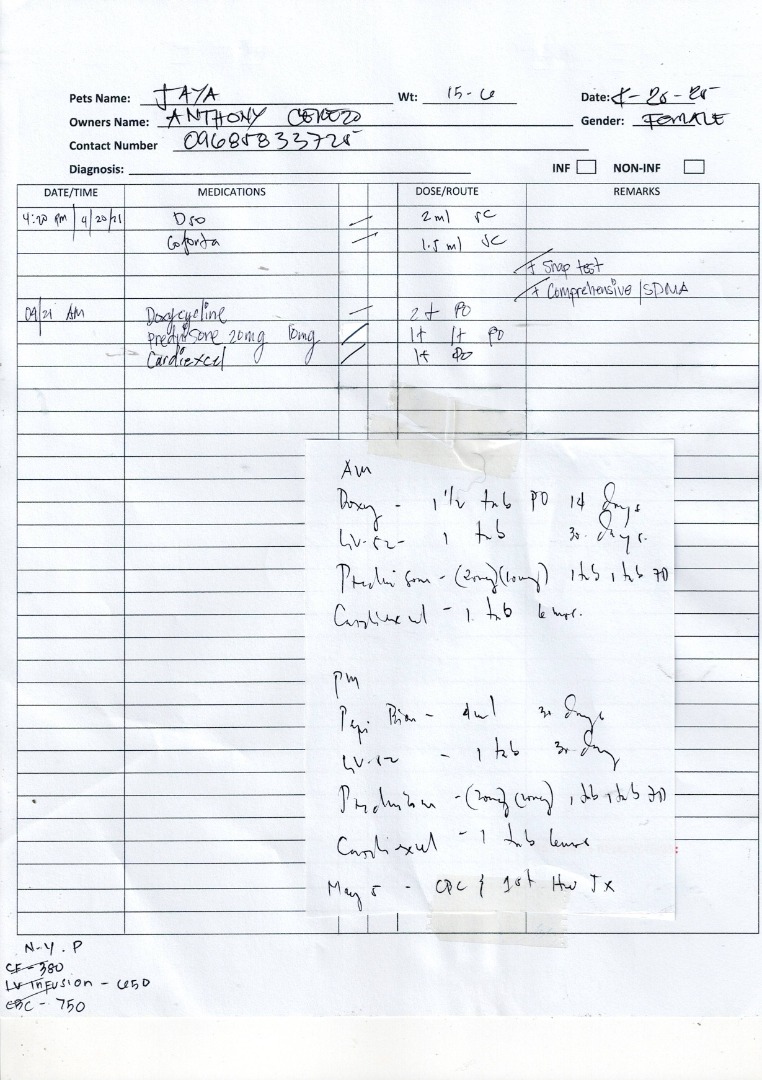 Pets Name: JAYA Wt: 15-6 Date: 4-20-25
Owners Name: ANTHONY CEREZO Gender: FEMALE
Contact Number 09685833725
Diagnosis: INF NON-INF
DATE/TIME MEDICATIONS DOSE/ROUTE REMARKS
4:20 PM 4/20/21 D50 2 ml SC
Coforta 1.5 ml SC
+ Snap test
+ Comprehensive / SDMA
04/21 AM Doxycycline 2 t PO
Prednisone 20mg 10mg 1t 1t PO
Cardiexcel 1t PO
Am
Doxy - 1 1/2 tab PO 14 days
LIV-52- 1 tab 30 days.
(20mg)(10mg) 1 tab, 1 tab 7D
Cardiexcel - 1 tab
pm
Pepi - 4ml 30 days
LIV-52 - 1 tab 30 day
- (20mg) (10mg) 1 tab, 1 tab 7D
Cardiexcel - 1 tab
May 5 - CBC & 1st HW Tx
N-Y.P
CF - 380
LV INFUSION - 650
CBC - 750